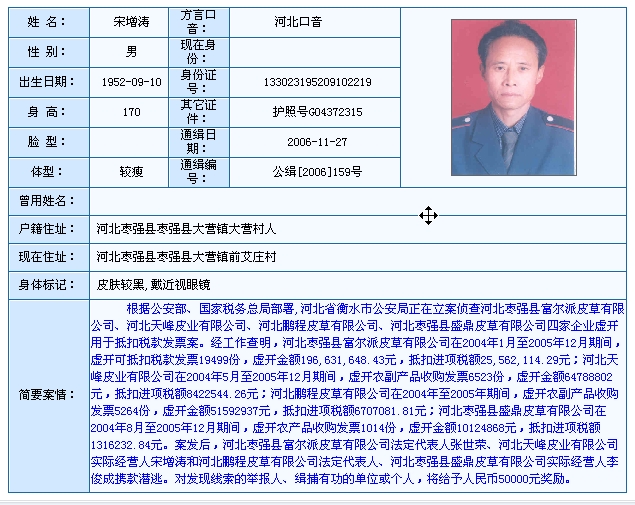 姓 名： 宋增涛 方言口音： 河北口音
性 别： 男 现在身份：
出生日期： 1952-09-10 身份证号： 133023195209102219
身 高： 170 其它证件： 护照号G04372315
脸 型： 通缉日期： 2006-11-27
体型： 较瘦 通缉编号： 公缉[2006]159号
曾用姓名：
户籍住址： 河北枣强县枣强县大营镇大营村人
现在住址： 河北枣强县枣强县大营镇前艾庄村
身体标记： 皮肤较黑,戴近视眼镜
简要案情：
根据公安部、国家税务总局部署,河北省衡水市公安局正在立案侦查河北枣强县富尔派皮草有限
公司、河北天峰皮业有限公司、河北鹏程皮草有限公司、河北枣强县盛鼎皮草有限公司四家企业虚开
用于抵扣税款发票案。经工作查明，河北枣强县富尔派皮草有限公司在2004年1月至2005年12月期间，
虚开可抵扣税款发票19499份，虚开金额196,631,648.43元，抵扣进项税额25,562,114.29元；河北天
峰皮业有限公司在2004年5月至2005年12月期间，虚开农副产品收购发票6523份，虚开金额64788802
元，抵扣进项税额8422544.26元；河北鹏程皮草有限公司在2004年至2005年期间，虚开农副产品收购
发票5264份，虚开金额51592937元，抵扣进项税额6707081.81元；河北枣强县盛鼎皮草有限公司在
2004年8月至2005年12月期间，虚开农产品收购发票1014份，虚开金额10124868元，抵扣进项税额
1316232.84元。案发后，河北枣强县富尔派皮草有限公司法定代表人张世荣、河北天峰皮业有限公司
实际经营人宋增涛和河北鹏程皮草有限公司法定代表人、河北枣强县盛鼎皮草有限公司实际经营人李
俊成携款潜逃。对发现线索的举报人、缉捕有功的单位或个人，将给予人民币50000元奖励。